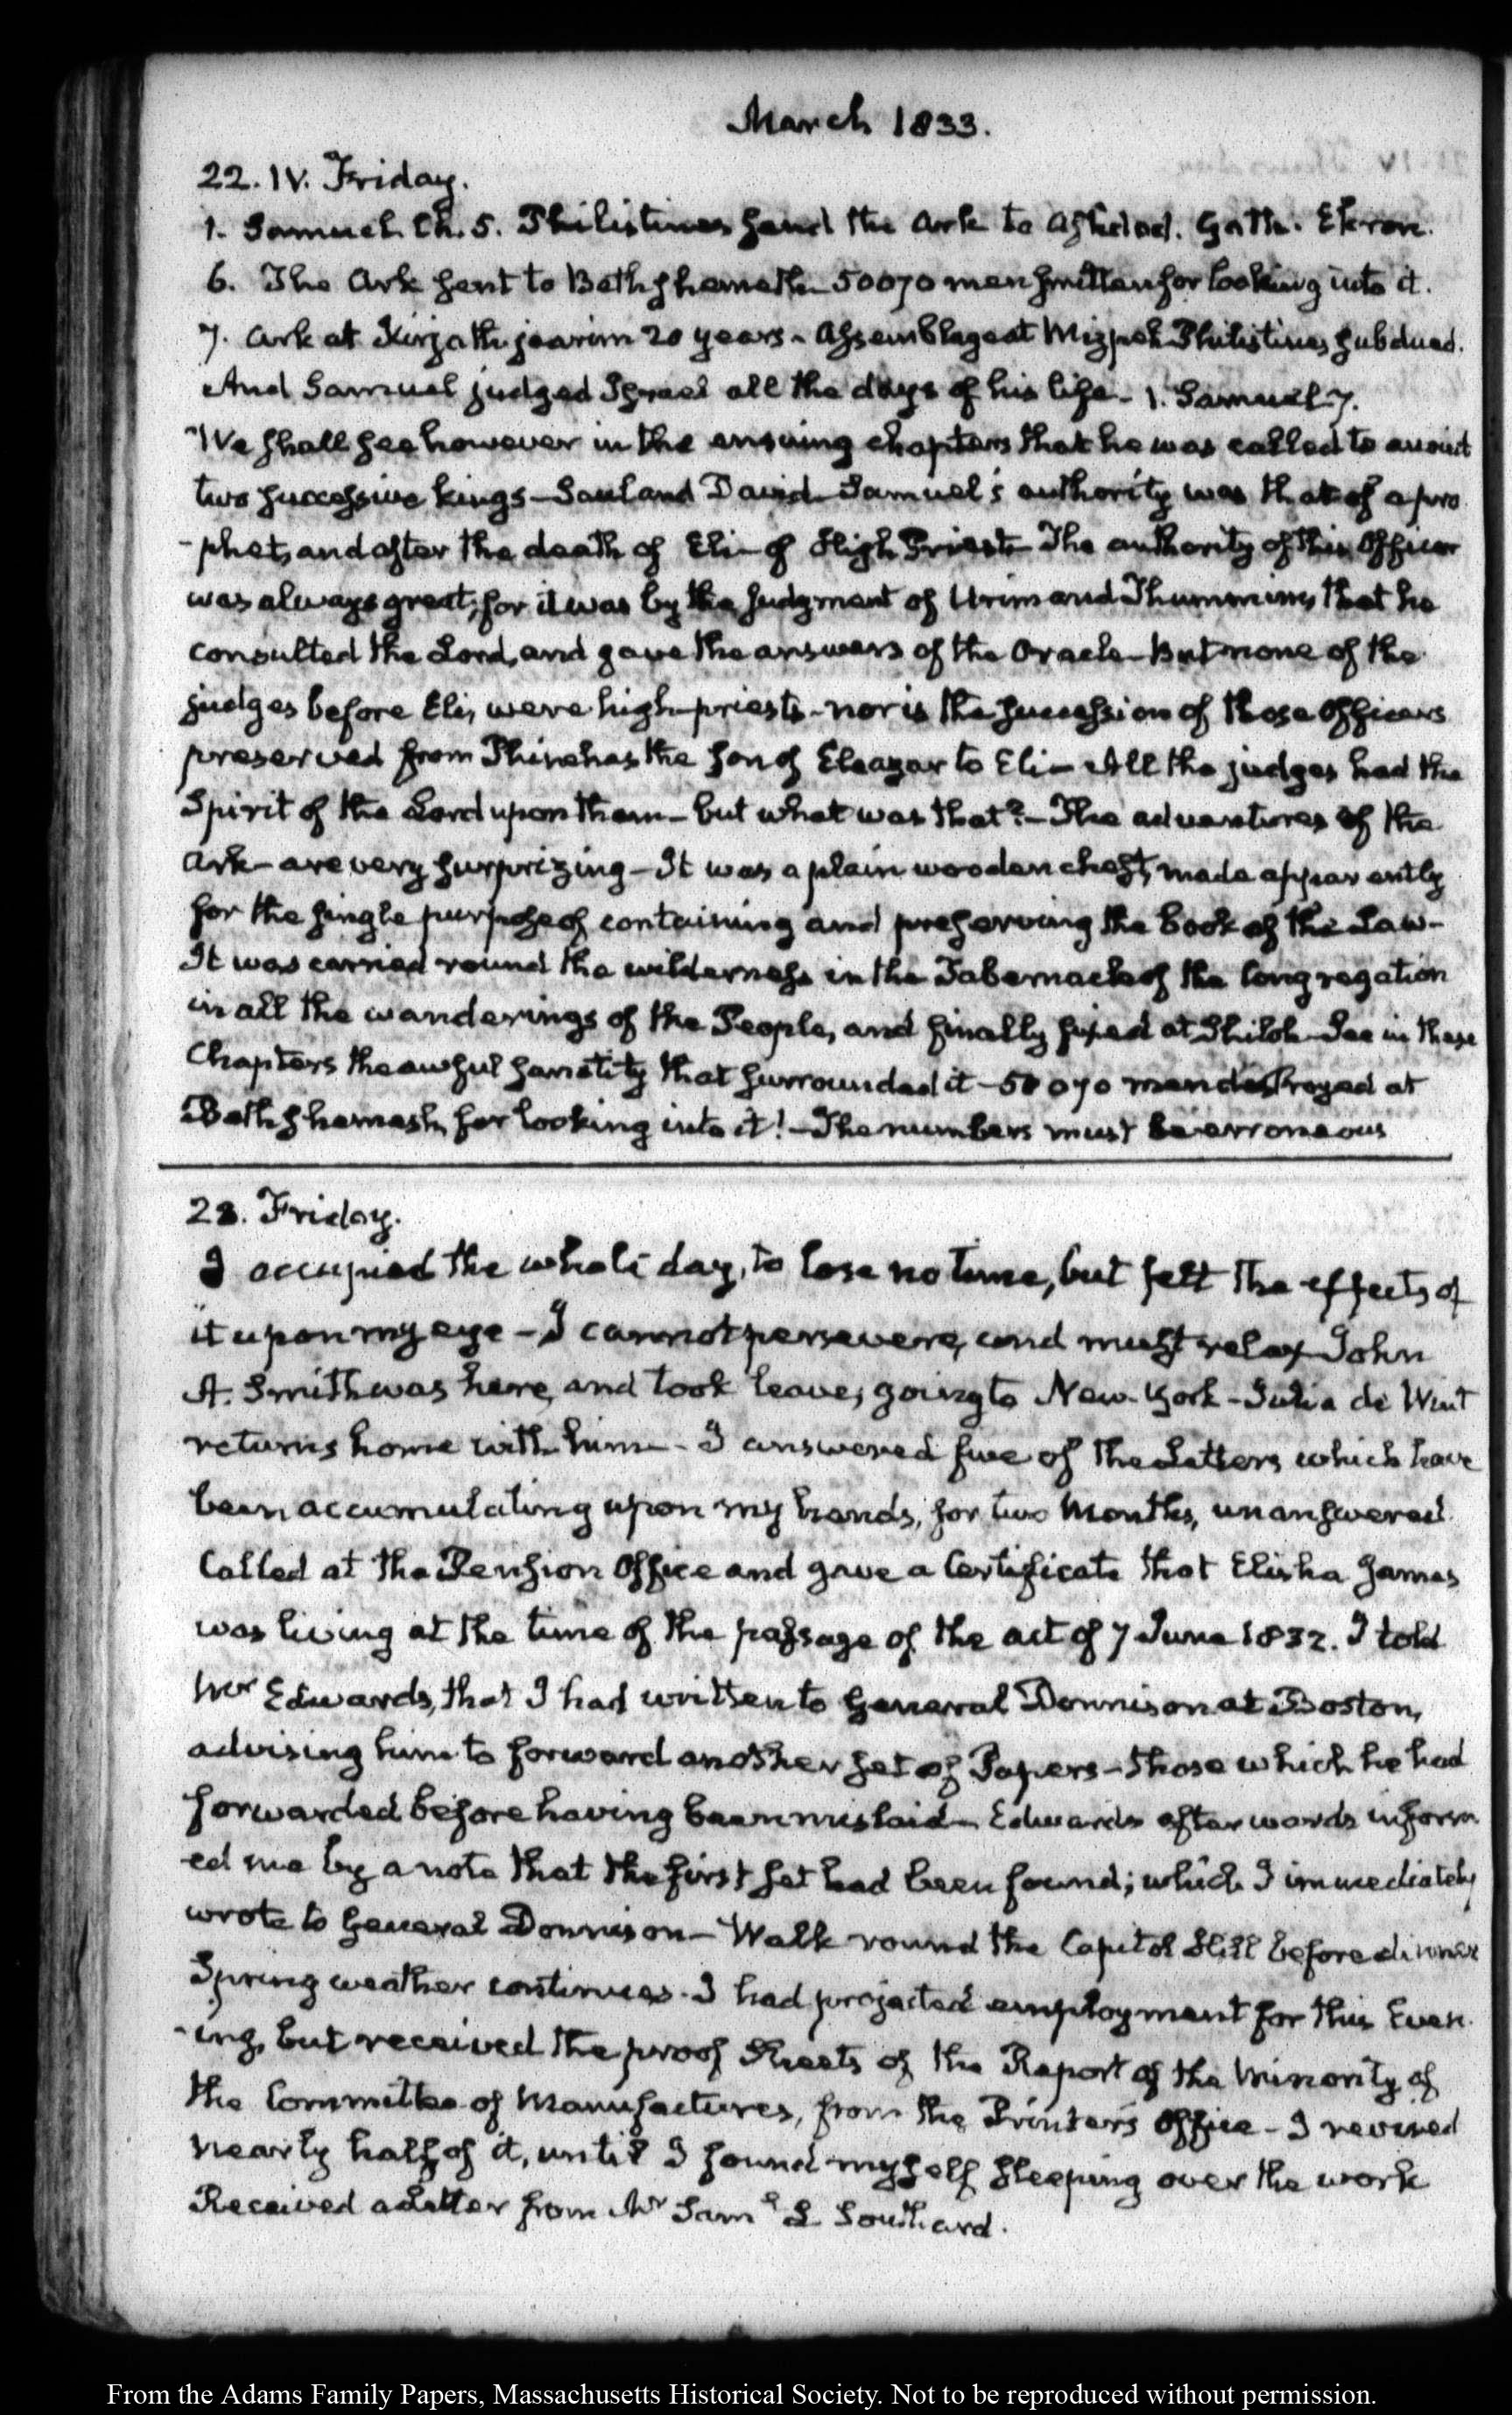 March 1833.
22. IV. Friday.
1. Samuel. Ch. 5. Philistines send the Ark to Ashdod. Gath. Ekron.
6. The Ark sent to Bethshemeth 50070 men smitten for looking into it.
7. Ark at Kirjath jearim 20 years - Assemblage at Mizpeh Philistines subdued.
And Samuel judged Israel all the days of his life - 1. Samuel 7.
We shall see however in the ensuing chapters that he was called to anoint
two successive kings - Saul and David - Samuel's authority was that of a pro
-phet, and after the death of Eli - of High Priest - The authority of this Officer
was always great; for it was by the judgment of Urim and Thummim, that he
consulted the Lord, and gave the answers of the Oracle - But none of the
judges before Eli, were high-priests - nor is the succession of those Officers
preserved from Phinehas the son of Eleazar to Eli - All the judges had the
Spirit of the Lord upon them - but what was that? - The adventures of the
Ark - are very surprizing - It was a plain wooden chest, made apparently
for the single purpose of containing and preserving the book of the Law -
It was carried round the wilderness in the Tabernacle of the Congregation
in all the wanderings of the People, and finally fixed at Shiloh - See in these
Chapters the awful sanctity that surrounded it - 50070 men destroyed at
Bethshemesh, for looking into it! - The numbers must be erroneous
22. Friday.
I occupied the whole day, to lose no time, but felt the effects of
it upon my eye - I cannot persevere, and must relax - John
A. Smith was here, and took leave, going to New-York - Julia de Wint
returns home with him - I answered five of the Letters which have
been accumulating upon my hands, for two Months, unanswered.
Called at the Pension Office and gave a Certificate that Elisha James
was living at the time of the passage of the act of 7 June 1832. I told
Mr Edwards, that I had written to General Donnison at Boston,
advising him to forward another set of Papers - those which he had
forwarded before having been mislaid - Edwards afterwards inform
-ed me by a note that the first set had been found; which I immediately
wrote to General Donnison - Walk round the Capitol Hill before dinner
Spring weather continues. I had projected employment for this Even
-ing, but received the proof Sheets of the Report of the Minority of
the Committee of Manufactures, from the Printer's Office - I revised
nearly half of it, until I found myself sleeping over the work
Received a Letter from Mr Saml L Southard.
From the Adams Family Papers, Massachusetts Historical Society. Not to be reproduced without permission.